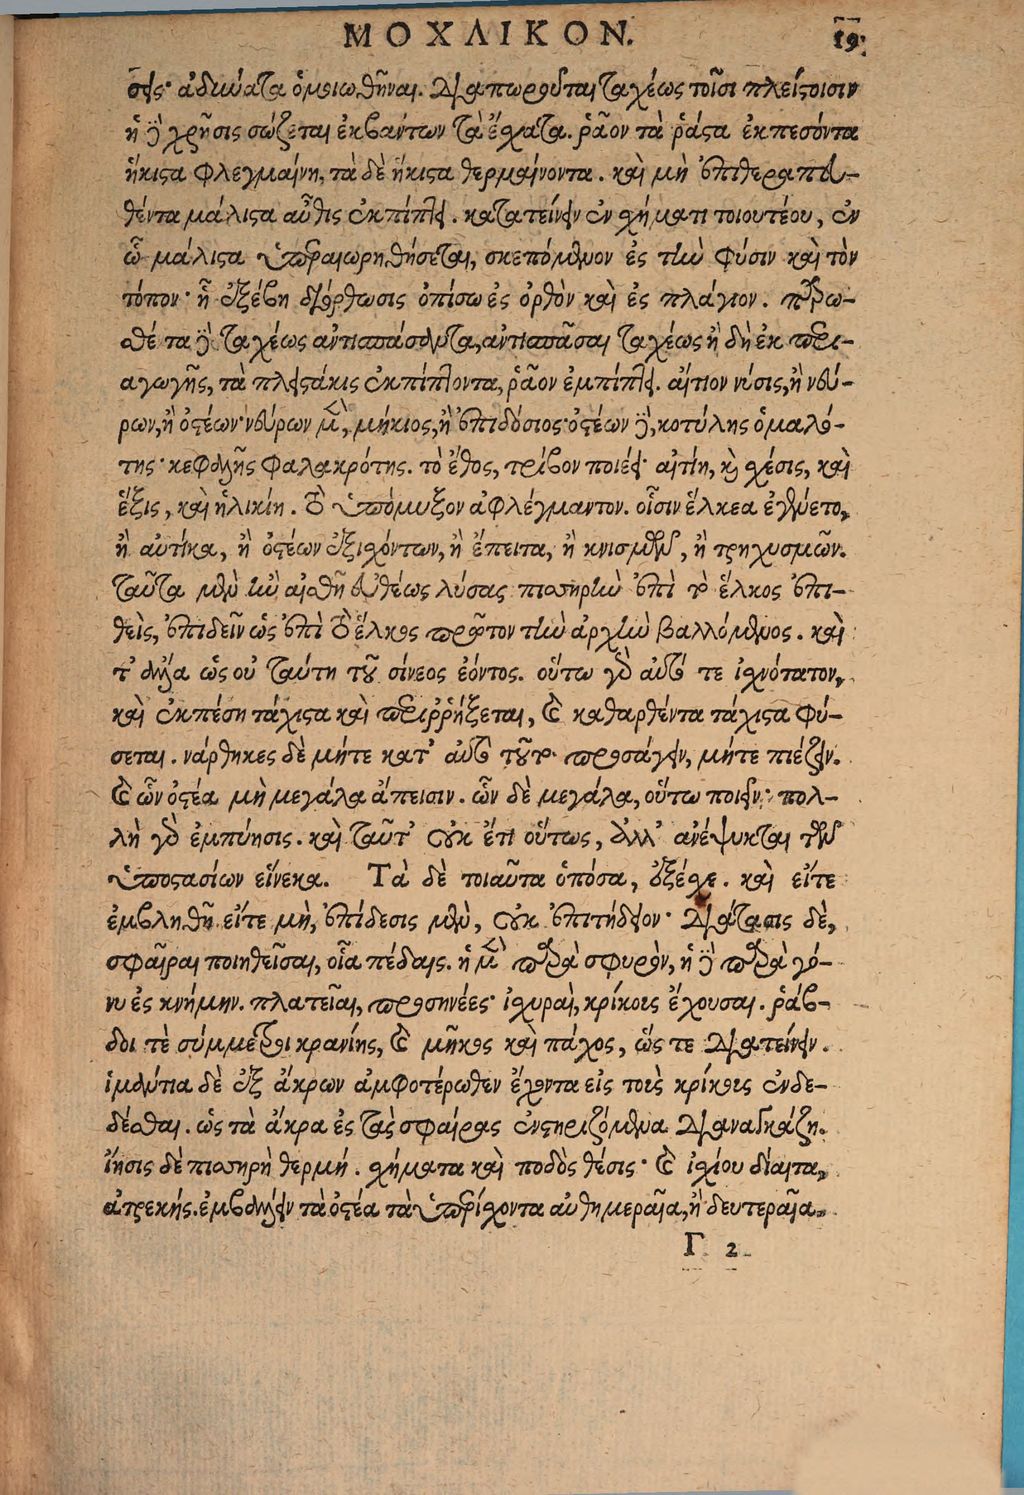 ΜΟΧΛΙΚΟΝ. 19
σῆς· ἀδυνάτα ὁμοιωθῆναι. διαπωροῦται ταχέως τοῖσι πλείστοισιν
ἡ δὲ χρῆσις σώζεται ἐκβαντων τὰ ἔσχατα. ῥᾶον τὰ ῥᾷστα ἐκπεσόντα
ἥκιστα φλεγμαίνῃ, τὰ δὲ ἥκιστα θερμαίνοντα. καὶ μὴ ἐπιθεραπευ-
θέντα μάλιστα αὖθις ἐκπίπτει. κατατείνειν ἐν σχήματι τοιουτέου, ἐν
ᾧ μάλιστα ὑπεραιωρηθήσεται, σκεπόμενον ἐς τὴν φύσιν καὶ τὸν
τόπον· ᾗ ἐξέβη διόρθωσις ὀπίσω ἐς ὀρθὸν καὶ ἐς πλάγιον. παρω-
θέτα δὲ ταχέως ἀντισπάσαντα, ἀντισπᾶσαι ταχέως ἢ δὴ ἐκ περι-
αγωγῆς, τὰ πλειστάκις ἐκπίπτοντα, ῥᾶον ἐμπίπτει. αἴτιον νύσις, ἢ νεύ-
ρων, ἢ ὀστέων· νεύρων μὲν, μήκιος, ἢ ἐπιδόσιος· ὀστέων δὲ, κοτύλης ὁμαλό-
της· κεφαλῆς φαλακρότης. τὸ ἔθος, τρίβον ποιέει· αἰτίη, καὶ σχέσις, καὶ
ἕξις, καὶ ἡλικίη. τὸ ὑπόμυξον ἀφλέγμαντον. οἷσιν ἕλκεα ἐγένετο,
ἢ αὐτίκα, ἢ ὀστέων ἐξισχόντων, ἢ ἔπειτα, ἢ κνισμῶν, ἢ τρηχυσμῶν.
ταῦτα μὲν ἢν αἰσθῇ εὐθέως λύσας πισσηρὴν ἐπὶ τὸ ἕλκος ἐπι-
θεὶς, ἐπιδεῖν ὡς ἐπὶ τὸ ἕλκος πρῶτον τὴν ἀρχὴν βαλλόμενος. καὶ
τ' ἄλλα ὡς οὐ ταύτῃ τοῦ σίνεος ἐόντος. οὕτω γὰρ αὐτό τε ἰσχνότατον,
καὶ ἐκπέσῃ τάχιστα καὶ περιρρήξεται, καὶ καθαρθέντα τάχιστα φύ-
σεται. νάρθηκες δὲ μήτε κατ' αὐτὸ τοῦτο προσάγειν, μήτε πιέζειν.
καὶ ὧν ὀστέα μὴ μεγάλα ἄπεισιν. ὧν δὲ μεγάλα, οὕτω ποιεῖν· πολ-
λὴ γὰρ ἐμπύησις. καὶ ταῦτ' οὐκ ἔτι οὕτως, ἀλλ' ἀνέψυκται τῶν
ὑποστασίων εἵνεκα. Τὰ δὲ τοιαῦτα ὁπόσα, ἐξέσχε. καὶ εἴτε
ἐμβληθῇ εἴτε μὴ, ἐπίδεσις μὲν, οὐκ ἐπιτήδειον· διάτασις δὲ,
σφαῖραι ποιηθεῖσαι, οἷα πέδαις. ἡ μὲν παρὰ σφυρὸν, ἡ δὲ παρὰ γό-
νυ ἐς κνήμην. πλατεῖαι, προσηνέες· ἰσχυραὶ, κρίκους ἔχουσαι. ῥάβ-
δοι τὲ σύμμετροι κρανίης, καὶ μῆκος καὶ πάχος, ὥς τε διατείνειν.
ἱμάντια δὲ ἐξ ἄκρων ἀμφοτέρωθεν ἔχοντα εἰς τοὺς κρίκους ἐνδε-
δέσθαι. ὡς τὰ ἄκρα ἐς τὰς σφαίρας ἐνστηριζόμενα διαναγκάζῃ.
ἴησις δὲ πισσηρὴ θερμή. σχήματα καὶ ποδὸς θέσις· καὶ ἰσχίου δίαιτα,
ἀτρεκής. ἐμβάλλειν τὰ ὀστέα τὰ ὑπερίσχοντα αὐθημεραῖα, ἢ δευτεραῖα,
Γ 2